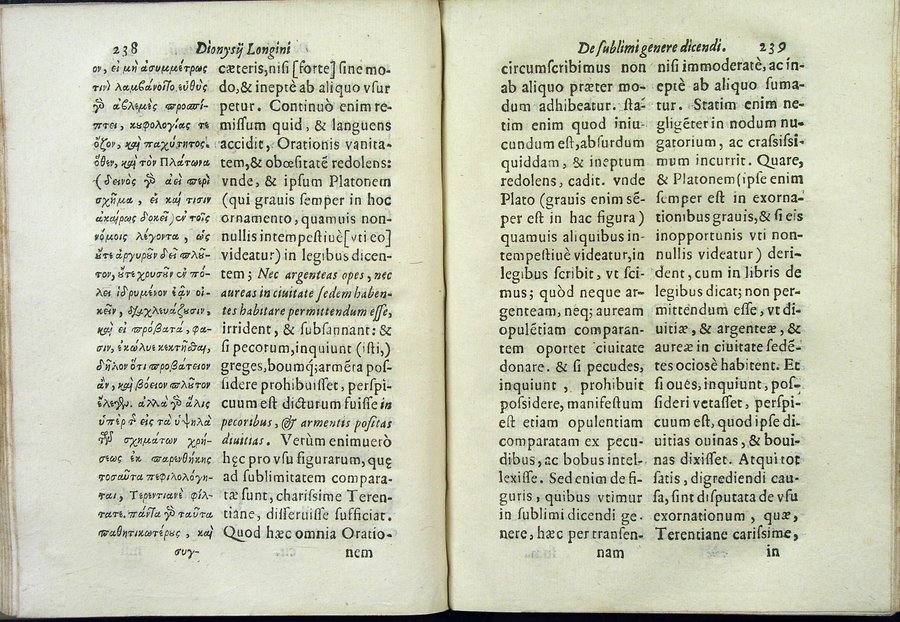 238
Dionysij Longini
ον, εἰ μὴ ἀσυμμέτρως
τινὶ λαμβάνοιτο, εὐθὺς
γὸ ἀβλεμὲς προσπί-
πτει, κουφολογίας τε
ὄζον, καὶ παχύτητος.
ὅθεν, καὶ τὸν Πλάτωνα
(δεινὸς γὸ ἀεὶ περὶ
σχῆμα, εἰ καί τισιν
ἀκαίρως δοκεῖ) ἐν τοῖς
νόμοις λέγοντα, ὡς
οὔτε ἀργυροῦν δεῖ πλοῦ-
τον, οὔτε χρυσοῦν ἐν πό-
λει ἱδρυμένον ἐᾶν οἰ-
κεῖν, διαχλευάζουσιν,
καὶ εἰ πρόβατά, φα-
σιν, ἐκώλυε κεκτῆσθαι,
δῆλον ὅτι προβατειον
ἂν, καὶ βόειον πλοῦτον
ἔλεγεν. ἀλλὰ γὸ ἅλις
ὑπὲρ τ εἰς τὰ ὑψηλὰ
τῶν σχημάτων χρή-
σεως ἐκ παρενθήκης
τοσαῦτα πεφιλολόγη-
ται, Τερεντιανὲ φίλ-
τατε. πάντα γὸ ταῦτα
παθητικωτέρους, καὶ
συγ-
cæteris, nisi [forte] sine mo-
do, & ineptè ab aliquo vsur
petur. Continuò enim re-
missum quid, & languens
accidit, Orationis vanita-
tem, & obœsitatē redolens:
vnde, & ipsum Platonem
(qui grauis semper in hoc
ornamento, quamuis non-
nullis intempestiuè[vti eo]
videatur) in legibus dicen-
tem; Nec argenteas opes, nec
aureas in ciuitate sedem haben-
tes habitare permittendum esse,
irrident, & subsannant: &
si pecorum, inquiunt (isti,)
greges, boumq; armēta pos-
sidere prohibuisset, perspi-
cuum est dicturum fuisse in
pecoribus, & armentis positas
diuitias. Verùm enimuerò
hęc pro vsu figurarum, quę
ad sublimitatem compara-
tæ sunt, charissime Teren-
tiane, disseruisse sufficiat.
Quod hæc omnia Oratio-
nem
De sublimi genere dicendi.
239
circumscribimus non
ab aliquo præter mo-
dum adhibeatur. sta-
tim enim quod iniu-
cundum est, absurdum
quiddam, & ineptum
redolens, cadit. vnde
Plato (grauis enim sē-
per est in hac figura)
quamuis aliquibus in-
tempestiuè videatur, in
legibus scribit, vt sci-
mus; quòd neque ar-
genteam, neq; auream
opulētiam comparan-
tem oportet ciuitate
donare. & si pecudes,
inquiunt, prohibuit
possidere, manifestum
est etiam opulentiam
comparatam ex pecu-
dibus, ac bobus intel-
lexisse. Sed enim de fi-
guris, quibus vtimur
in sublimi dicendi ge-
nere, hæc per transen-
nam
nisi immoderatè, ac in-
eptè ab aliquo suma-
tur. Statim enim ne-
gligēter in nodum nu-
gatorium, ac crassissi-
mum incurrit. Quare,
& Platonem (ipse enim
semper est in exorna-
tionibus grauis, & si eis
inopportunis vti non-
nullis videatur) deri-
dent, cum in libris de
legibus dicat; non per-
mittendum esse, vt di-
uitiæ, & argenteæ, &
aureæ in ciuitate sedē-
tes ociosè habitent. Et
si oues, inquiunt, pos-
sideri vetasset, perspi-
cuum est, quod ipse di-
uitias ouinas, & boui-
nas dixisset. Atqui tot
satis, digrediendi cau-
sa, sint disputata de vsu
exornationum, quæ,
Terentiane carissime,
in